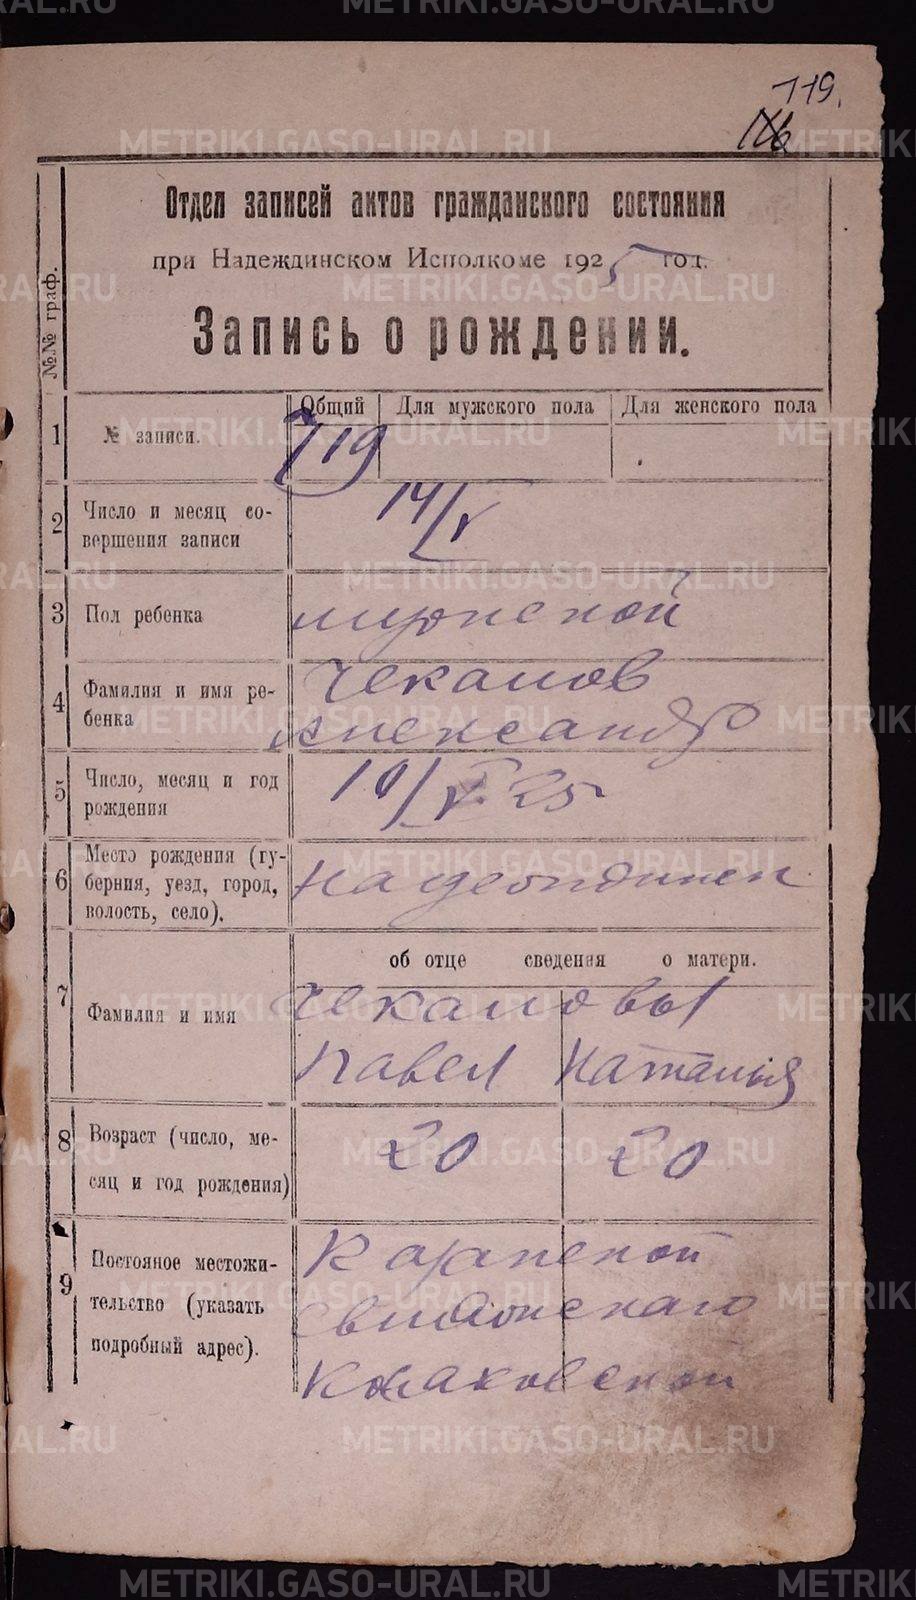 119.
Отдел записей актов гражданского состояния
при Надеждинском Исполкоме 1925 год.
Запись о рождении.
№№ граф.
Общий Для мужского пола Для женского пола
1 № записи. 719
2 Число и месяц со-
вершения записи
14/V
3 Пол ребенка мужской
4 Фамилия и имя ре-
бенка
Чекалов
Александр
5 Число, месяц и год
рождения
10/V 25
6 Место рождения (гу-
берния, уезд, город,
волость, село).
Надеждинск
об отце сведения о матери.
7 Фамилия и имя
Чекаловы
Павел Наталья
8 Возраст (число, ме-
сяц и год рождения)
20 20
9 Постояное местожи-
тельство (указать
подробный адрес).
METRIKI.GASO-URAL.RU